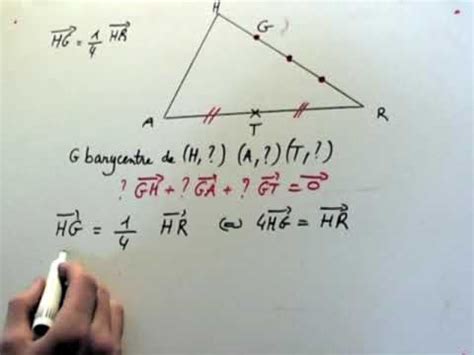 H
$\overrightarrow{HG} = \frac{1}{4} \overrightarrow{HR}$
G
A
T
R
G barycentre de (H, ?) (A, ?) (T, ?)
? $\overrightarrow{GH}$ + ? $\overrightarrow{GA}$ + ? $\overrightarrow{GT}$ = $\overrightarrow{0}$
$\overrightarrow{HG} = \frac{1}{4} \overrightarrow{HR}$ ⇔ $4\overrightarrow{HG} = \overrightarrow{HR}$